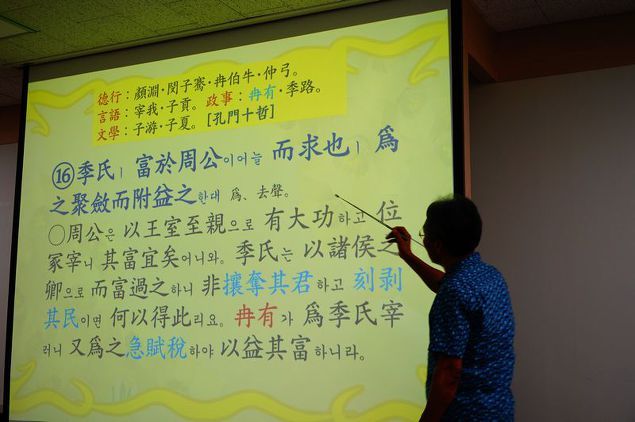 德行：顏淵·閔子騫·冉伯牛·仲弓。
言語：宰我·子貢。政事：冉有·季路。
文學：子游·子夏。[孔門十哲]
⑯季氏ㅣ 富於周公이어늘 而求也ㅣ 爲
之聚斂而附益之한대 爲、去聲。
○周公은 以王室至親으로 有大功하고 位
冢宰니 其富宜矣어니와. 季氏는 以諸侯之
卿으로 而富過之하니 非攘奪其君하고 刻剥
其民이면 何以得此리요. 冉有가 爲季氏宰
러니 又爲之急賦稅하야 以益其富하니라。